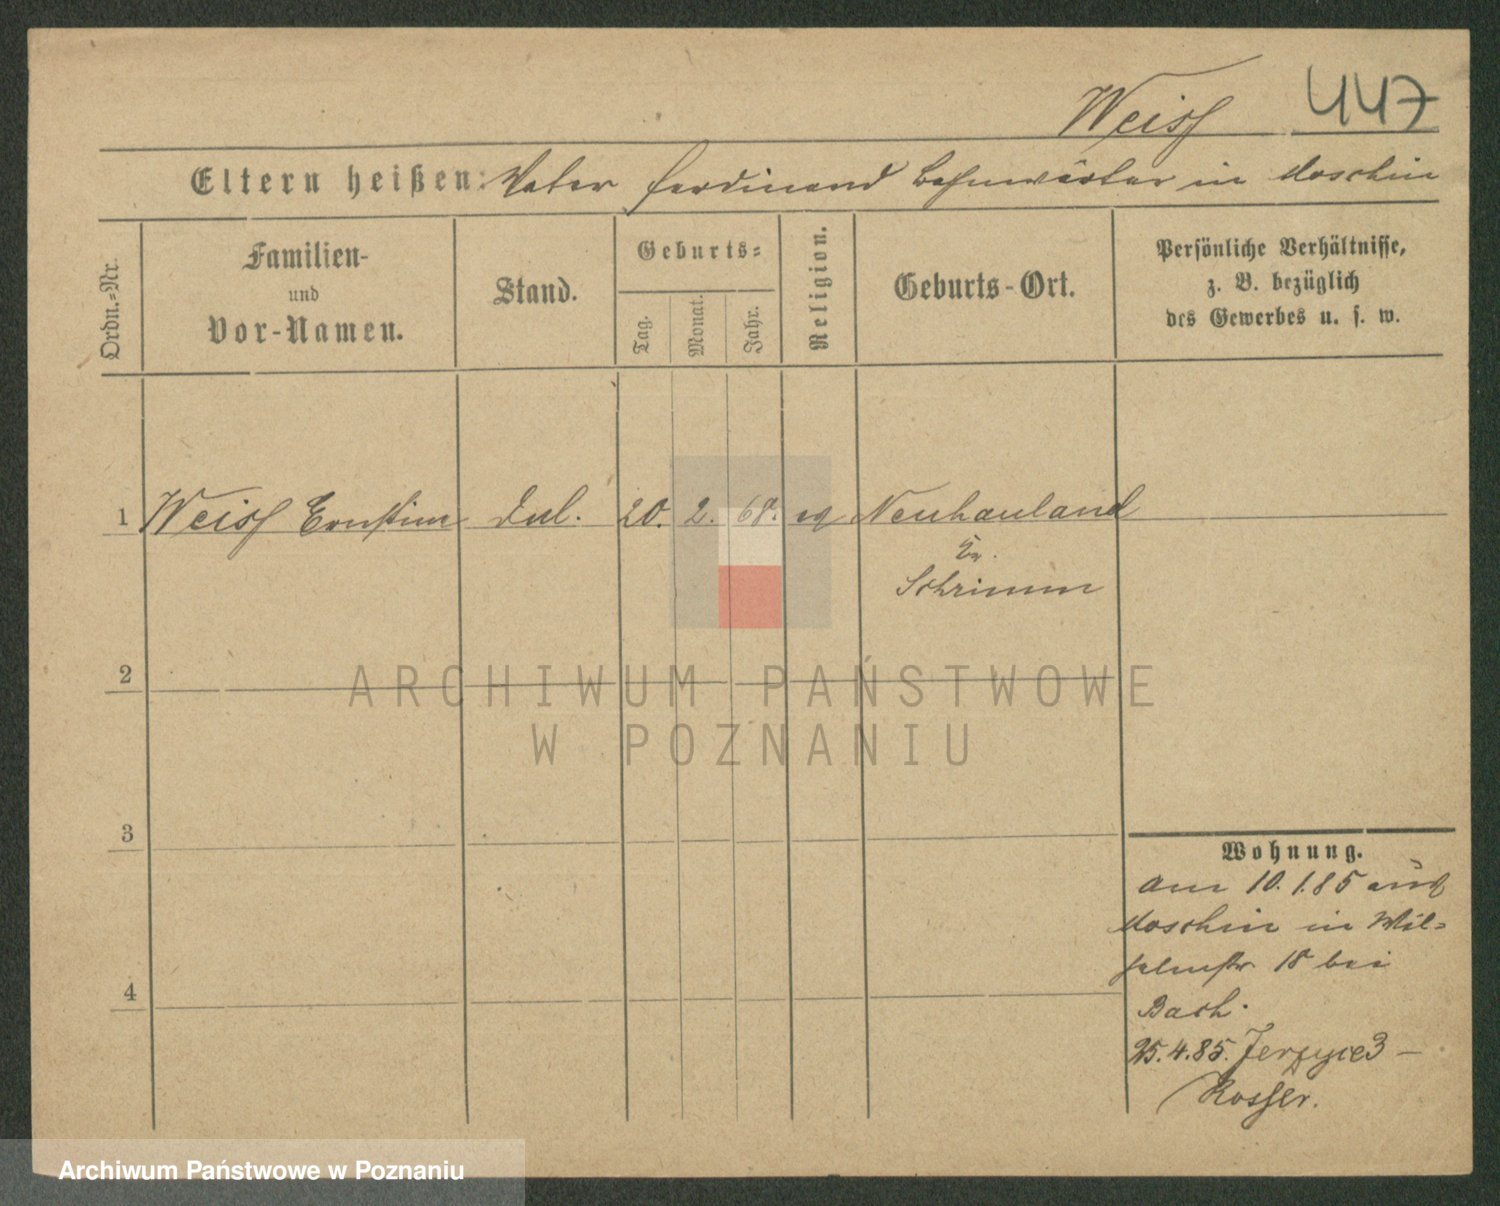 Weiss 447
Eltern heißen: Vater Ferdinand Bahnwärter in Moschin
Ordn.-Nr.
Familien-
und
Vor-Namen.
Stand.
Geburts-
Tag.
Monat.
Jahr.
Religion.
Geburts-Ort.
Persönliche Verhältnisse,
z. B. bezüglich
des Gewerbes u. s. w.
1 Weiss Ernstine 20. 2. 68. ev Neuhauland
Kr.
Schrimm
2
ARCHIWUM PAŃSTWOWE
W POZNANIU
3
Wohnung.
am 10.1.85 aus
Moschin in Wil-
helmstr. 18 bei
Bach.
4
25.4.85. Jerzyce 3 –
Archiwum Państwowe w Poznaniu